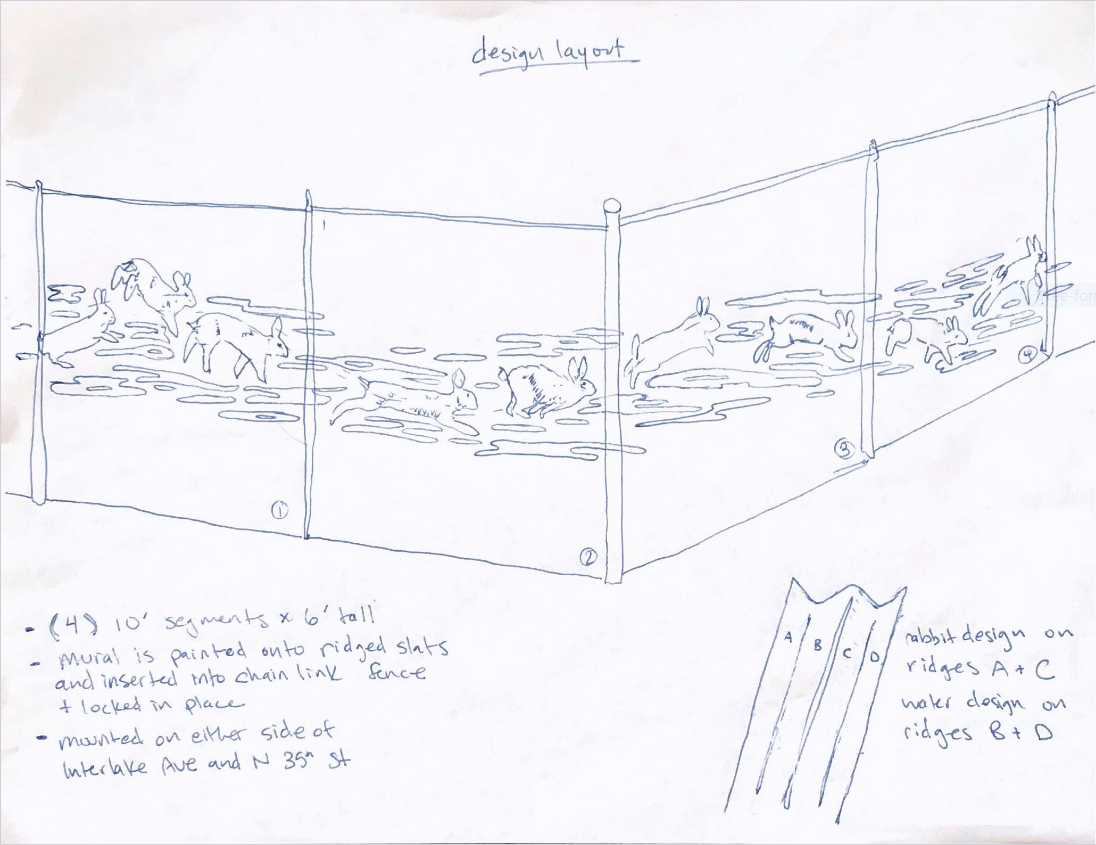 design layout
①
②
③
④
- (4) 10' segments x 6' tall
- mural is painted onto ridged slats
and inserted into chain link fence
+ locked in place
- mounted on either side of
Interlake Ave and N 35th St
A B C D
rabbit design on
ridges A + C
water design on
ridges B + D